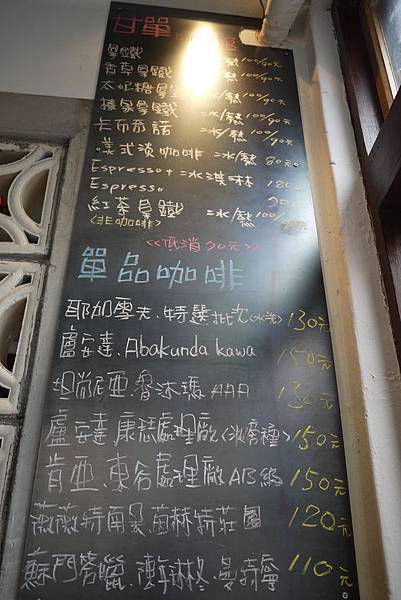 甘單
拿鐵
香草拿鐵 =冰/熱 100/90元
太妃糖拿鐵 =冰/熱 100/90元
榛果拿鐵 =冰/熱 100/90元
卡布奇諾 =冰/熱 100/90元
美式淡咖啡 =冰/熱 80元
Espresso + 冰淇淋 120
Espresso 90元
紅茶拿鐵 =冰/熱 100/
<非咖啡>
<<低消90元>>
單品咖啡
耶加雪夫.特選批次<水洗> 130元
盧安達.Abakunda kawa 150元
坦尚尼亞.魯沐瑪AAA 130元
盧安達.康瑟處理廠<波旁種> 150元
肯亞.東谷處理廠AB級 150元
薇薇特南果.茵赫特莊園 120元
蘇門答臘.陳年林東.曼特寧 110元